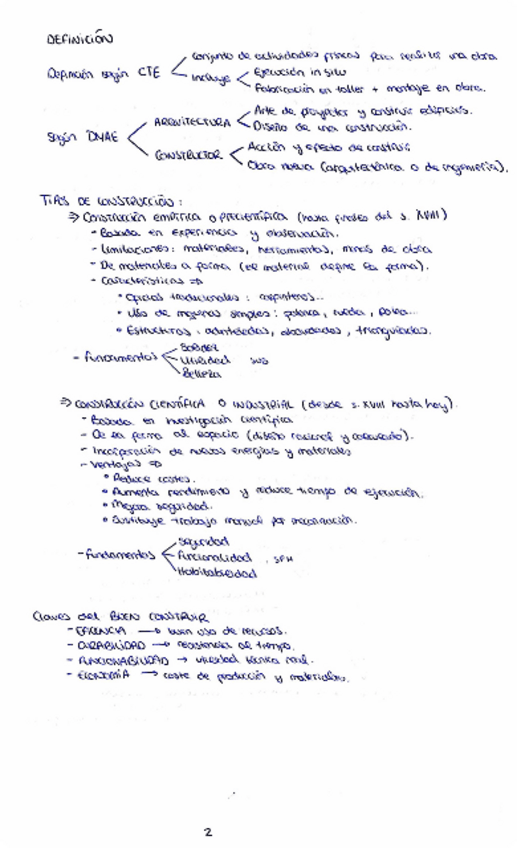 DEFINICIÓN
Definición según CTE
Conjunto de actividades físicas para realizar una obra
Incluye
Ejecución in situ
Fabricación en taller + montaje en obra.
Según
ARQUITECTURA
Arte de proyectar y construir edificios.
Diseño de una construcción.
CONSTRUCTOR
Acción y efecto de construir
Obra nueva (arquitectónica o de ingeniería).
TIPOS DE CONSTRUCCIÓN:
⇒ Construcción empírica o precientífica (hasta finales del s. XVIII)
- Basada en experiencia y observación.
- Limitaciones: materiales, herramientas, manos de obra
- De materiales a forma (el material define la forma).
- Características ⇒
• Oficios tradicionales: carpinteros...
• Uso de máquinas simples: palanca, rueda, polea...
• Estructuras: adinteladas, abovedadas, trianguladas.
- Fundamentos
Solidez
Utilidad
Belleza
SUB
⇒ CONSTRUCCIÓN CIENTÍFICA O INDUSTRIAL (desde s. XVIII hasta hoy).
- Basada en investigación científica
- De la forma al espacio (diseño racional y calculado).
- Incorporación de nuevas energías y materiales
- Ventajas ⇒
• Reduce costes.
• Aumenta rendimiento y reduce tiempo de ejecución.
• Mejora seguridad.
• Sustituye trabajo manual por mecanización.
- Fundamentos
Seguridad
Funcionalidad
Habitabilidad
. SFH
Claves del BUEN CONSTRUIR
- EFICIENCIA → buen uso de recursos.
- DURABILIDAD → resistencia al tiempo.
- FUNCIONABILIDAD → utilidad técnica real.
- ECONOMÍA → coste de producción y materiales.
2